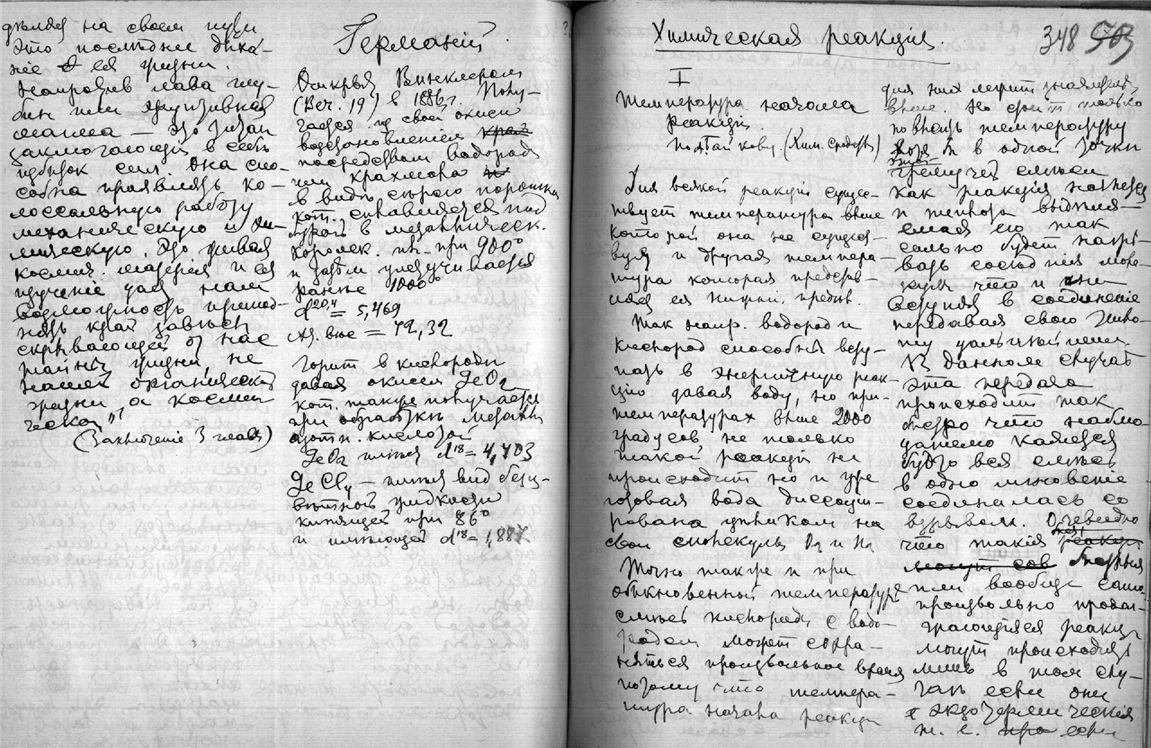 дѣляя на своем пути
это последнее дыха-
ніе ея жизни.
Напротив лава глу-
бин или
магма — это
заключающій в себѣ
избыток сил. Она спо-
собна проявлять ко-
лоссальную работу
механическую и хи-
мическую. Это живая
космич. матерія и ея
изученіе дает нам
возможность припод-
нять край завѣсы
скрывающей от нас
тайны жизни, не
нашей органической
жизни а косми-
ческой"
(Заключеніе 3 главы)
Германій.
Открыт Винклером
(Веч. 19) в 1886 г. Полу-
чается из своей окиси
возстановленіем
посредством водорода
или крахмала
в видѣ сѣраго порошка
кот. сплавляется под
бурой в металлическ.
королек. пл. при 900°
и затѣм улетучивается
ранѣе 1000°
d 20,4 = 5,469
Ат. вѣс = 72,32
Горит в кислородѣ
давая окисел GeO2
кот. также получается
при обработкѣ металла
азотн. кислотой
GeO2 имѣя d18 = 4,703
GeCl4 — имѣя вид безц-
вѣтной жидкости
кипящей при 86°
и имѣющей d18 = 1,887
Химическая реакція.
348 503
I
Температура начала
реакціи.
(Хим. сродств)
Для всякой реакціи сущес-
твует температура выше
которой она не сущест-
вуя и другая темпера-
тура которая представ-
ляет ея нижній предѣл.
Так напр. водород и
кислород способны всту-
пать в энергичную реак-
цію давая воду, но при
температурах выше 2000
градусов не только
такой реакціи не
происходит но и уже
готовая вода диссоци-
ирована цѣликом на
свои молекулы O2 и H2
Точно также и при
обыкновенной температурѣ
смѣсь кислорода с водо-
родом может сохра-
няться произвольное время
потому что темпера-
тура начала реакціи
для них лежит значительно
выше. Но стоит только
повысить температуру
хотя бы в одной точки
гремучей смеси
как реакція начнется
и теплота выдѣля-
емая ею так
сильно будет нагрѣ-
вать сосѣднія моле-
кулы что и они
вступят в соединеніе
передавая свою тепло-
ту дальнѣйшим.
В данном случаѣ
эта передача
происходит так
быстро что наблю-
дателю кажется
будто вся смѣсь
в одно мгновеніе
соединилась со
взрывом. Очевидно
что такія реакціи
могут сов быстрыя
или вообще само-
произвольно продол-
жающіяся реакціи
могут происходить
лишь в том слу-
чаѣ если они
экзотермическія
т. е. при если